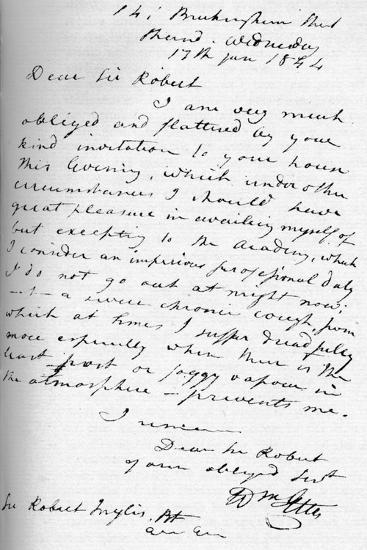 14, Buckingham Street
Strand. Wednesday
17th Jan 1844
Dear Sir Robert
I am very much
obliged and flattered by your
kind invitation to your house
this Evening, which under other
circumstances I should have
great pleasure in availing myself of
but excepting to the Academy, which
I consider an imperious professional duty
I do not go out at night now;
a severe chronic cough, from
which at times I suffer dreadfully
more especially when there is the
least frost or foggy vapour in
the atmosphere — prevents me.
I remain
Dear Sir Robert
your obliged Servt
Wm Etty
Sir Robert Inglis. Bt